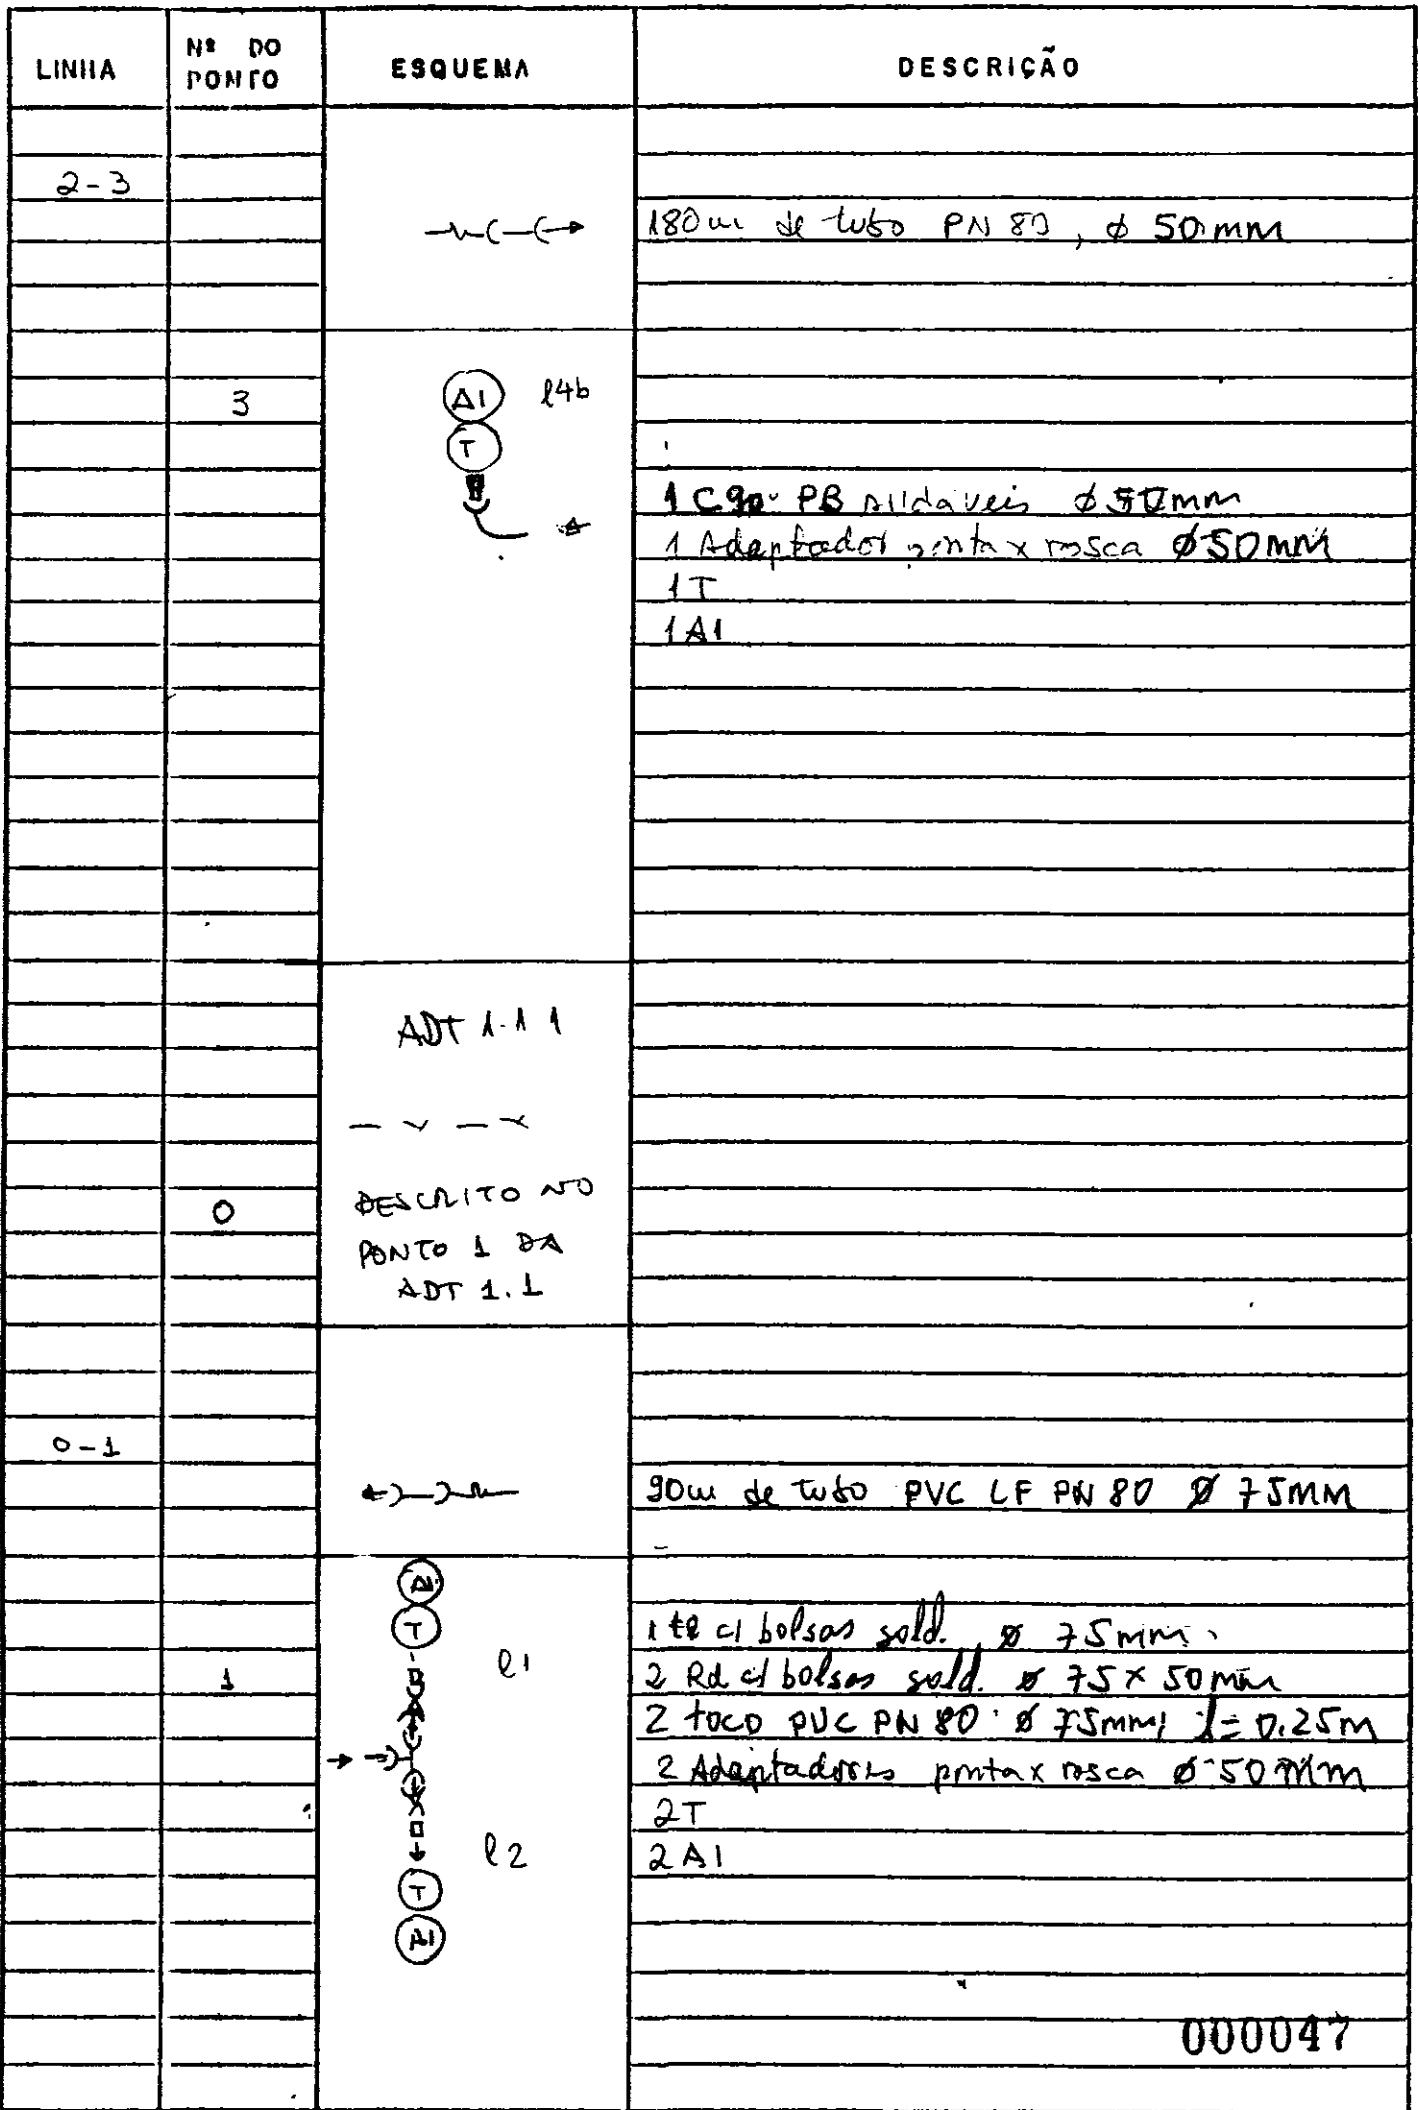 LINHA Nº DO PONTO ESQUEMA DESCRIÇÃO
2-3
180m de tubo PN 80, ø 50mm
3 A1 l4b
T
1 C90° PB soldáveis ø 50mm
1 Adaptador ponta x rosca ø 50mm
1T
1A1
ADT 1.1.1
0 DESCRITO NO
PONTO 1 DA
ADT 1.1
0-1
90m de tubo PVC LF PN 80 ø 75MM
A1
T 1 tê c/ bolsas sold. ø 75mm
1 l1 2 Rd c/ bolsas sold. ø 75 x 50mm
2 toco PVC PN 80 ø 75mm, l=0.25m
2 Adaptadores ponta x rosca ø 50mm
2T
l2 2A1
T
A1
000047